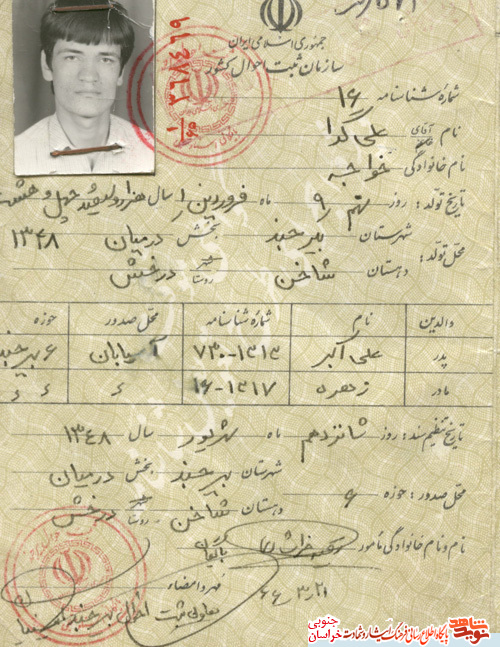 جمهوری اسلامی ایران
سازمان ثبت احوال کشور
شماره شناسنامه ۱۶
نام آقای علی گدا
نام خانوادگی خواجه
تاریخ تولد: روز نهم ۹ ماه فروردین ۱ سال هزار و سیصد و چهل و هشت
۱۳۴۸
محل تولد: شهرستان بیرجند بخش درمیان
دهستان شاخن شهر روستا درخش
والدین نام شماره شناسنامه محل صدور حوزه
پدر علی اکبر ۷۳۰-۱۳۱۳ آسیابان ۶ بیرجند
مادر زهره ۱۶-۱۳۱۷ ء ء ء
تاریخ تنظیم سند: روز شانزدهم ماه شهریور سال ۱۳۴۸
محل صدور: حوزه ۶ شهرستان بیرجند بخش درمیان
دهستان شاخن شهر روستا درخش
نام و نام خانوادگی مامور
مهر و امضاء
۶۶-۳-۲۱
معاونت ثبت احوال بیرجند
نوید شاهد
پایگاه اطلاع رسانی فرهنگ ایثار و شهادت خراسان جنوبی